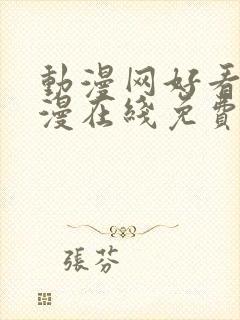 動漫网好看
漫在綫免費
張芬